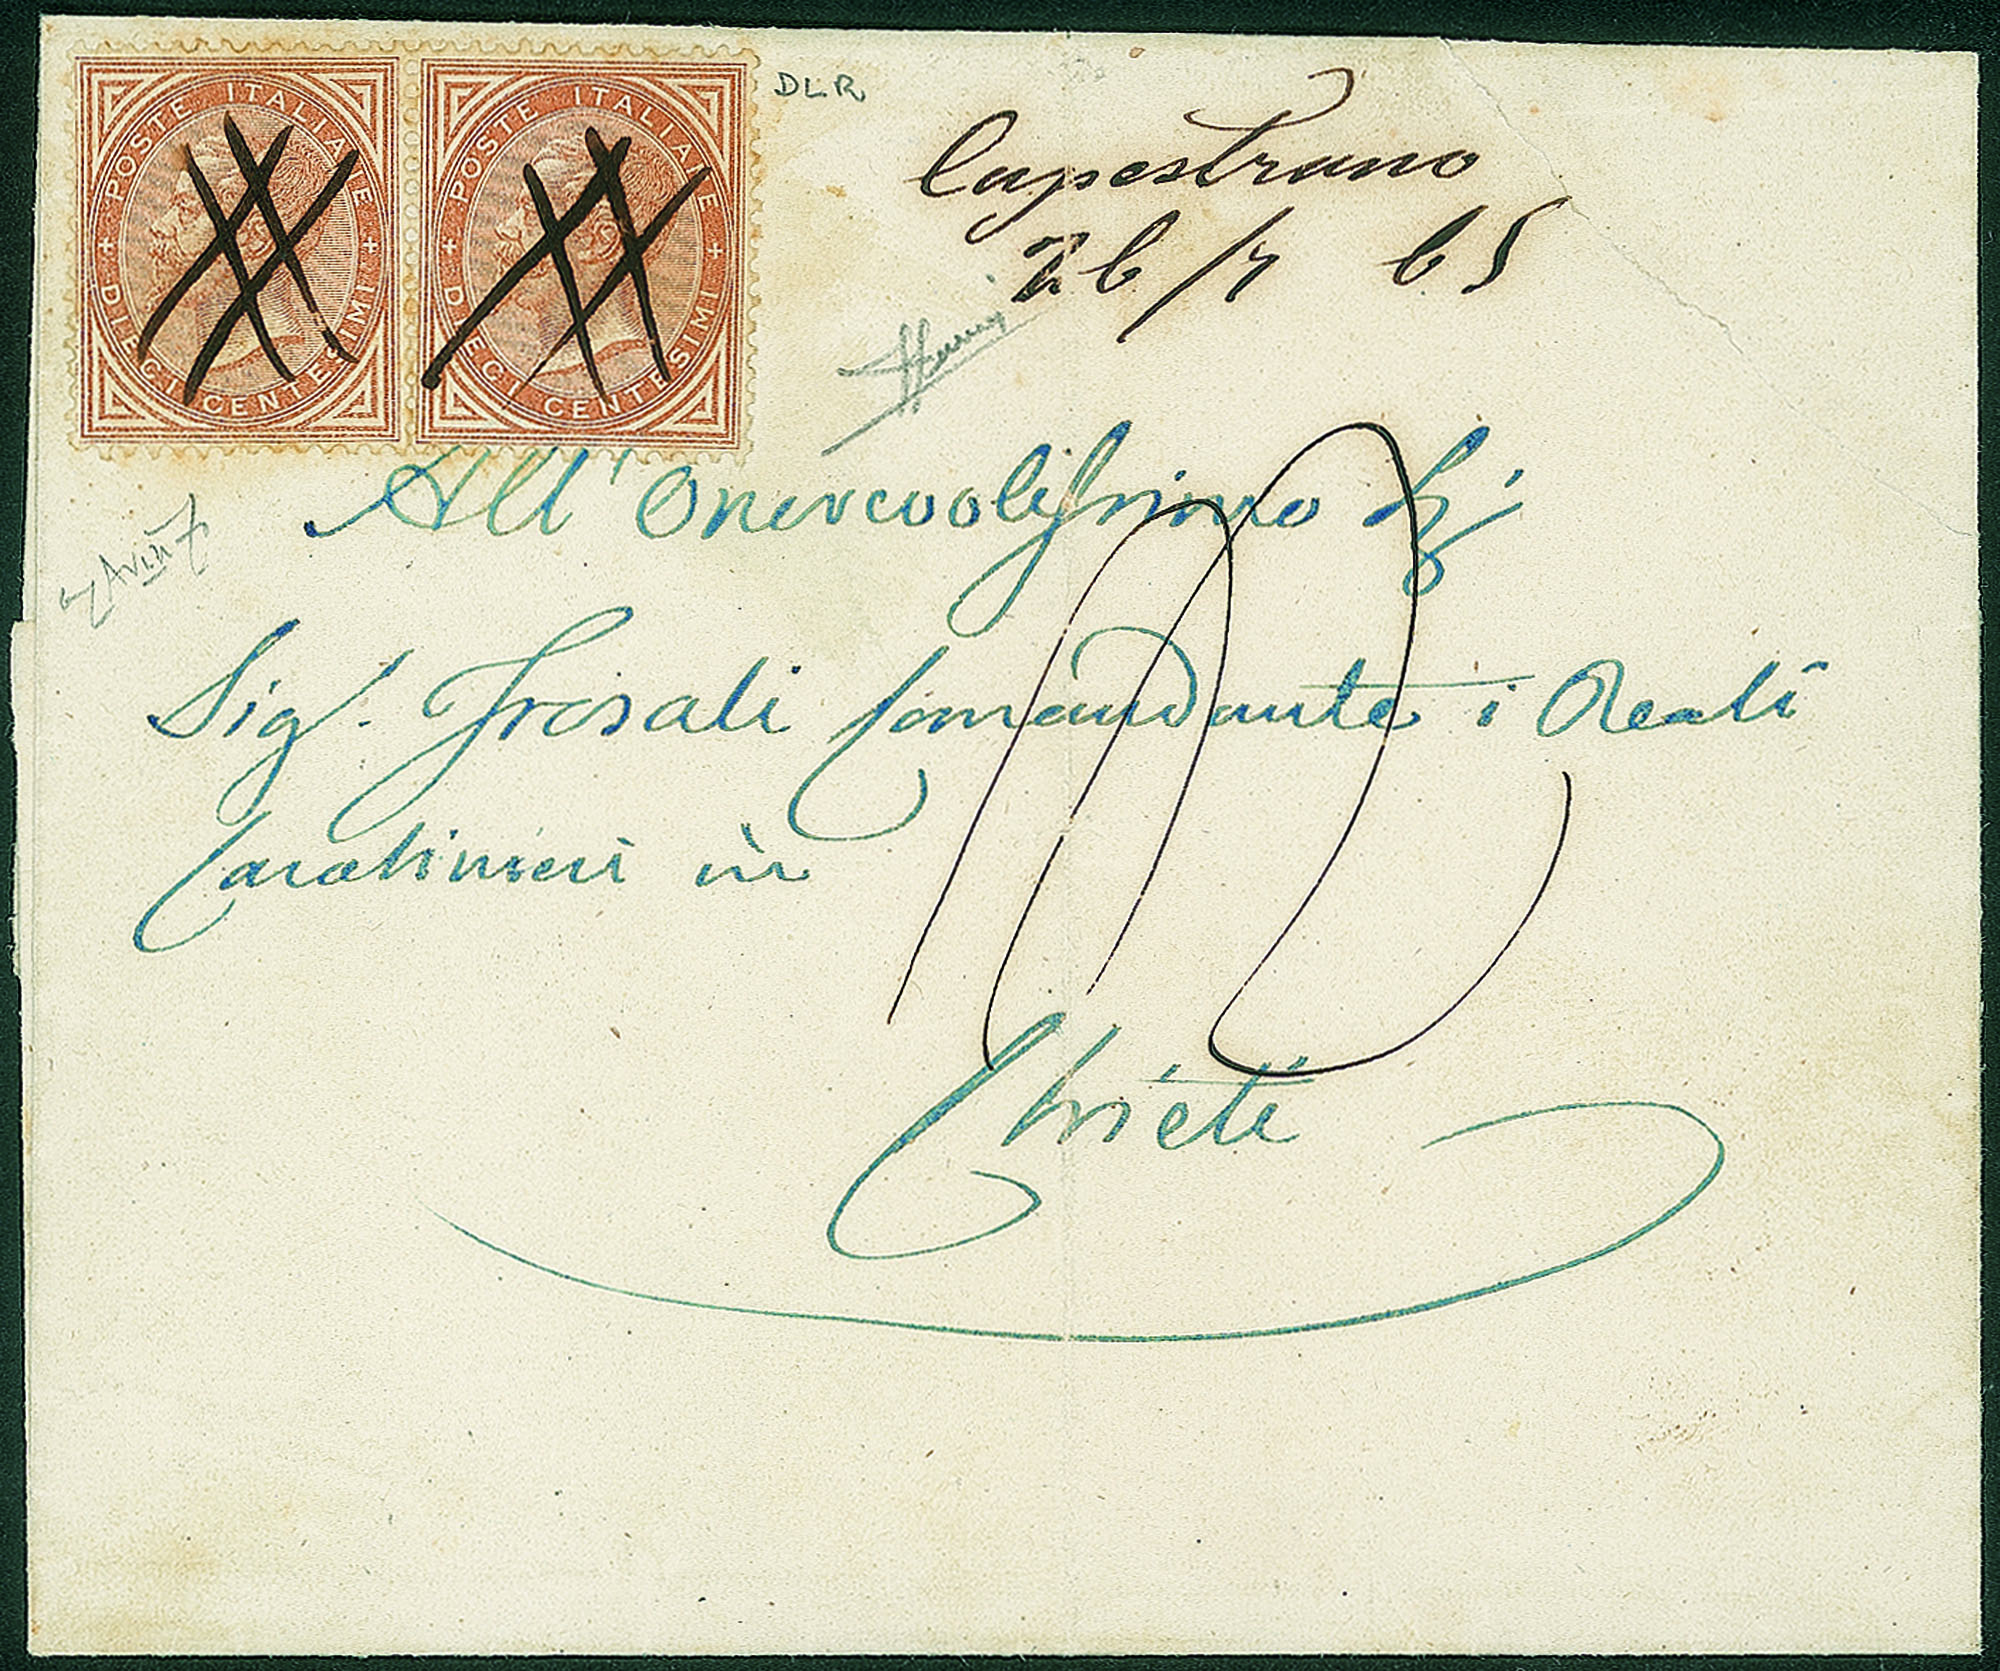 POSTE ITALIANE
+ DIECI CENTESIMI +
POSTE ITALIANE
+ DIECI CENTESIMI +
DLR
Capestrano
26/7 65
All'Onorevolissimo Sig.
Sig. Frosali Comandante i Reali
Carabinieri in
Chieti